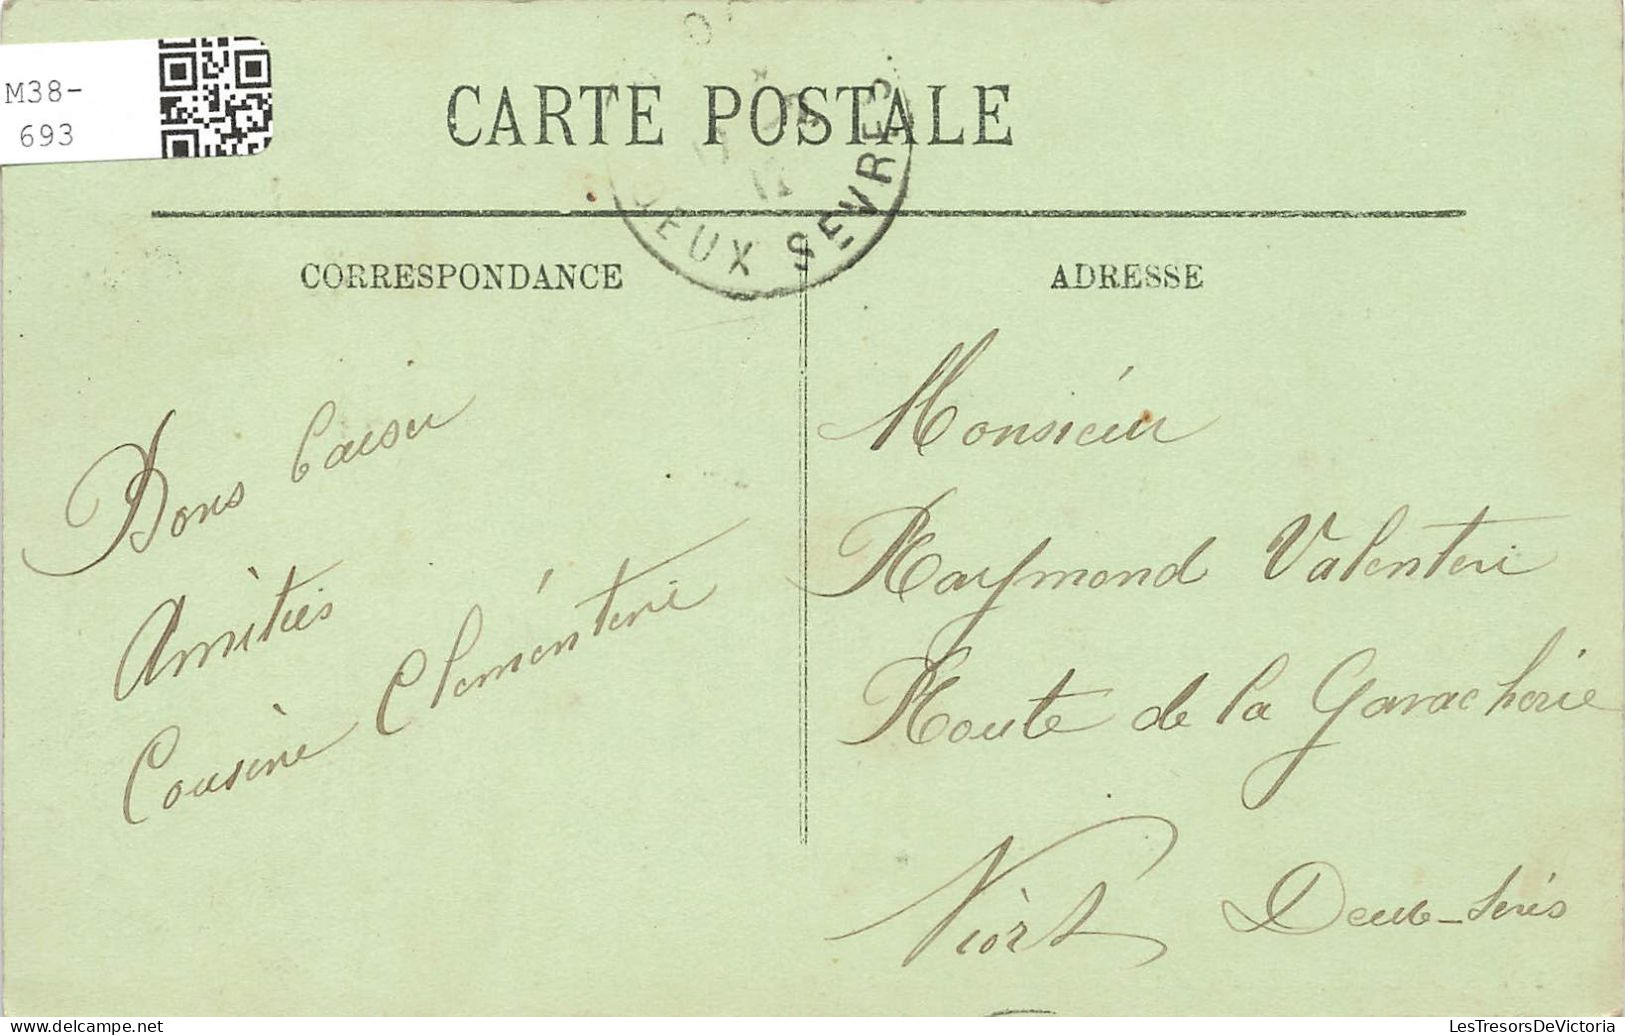 M38-
693
CARTE POSTALE
DEUX SEVRES
CORRESPONDANCE
ADRESSE
Bons baiser
Amitiés
Cousine Clémentine
Monsieur
Raymond Valentin
Route de la Gavacherie
Niort Deux-Sèvres
delcampe.net
LesTresorsDeVictoria